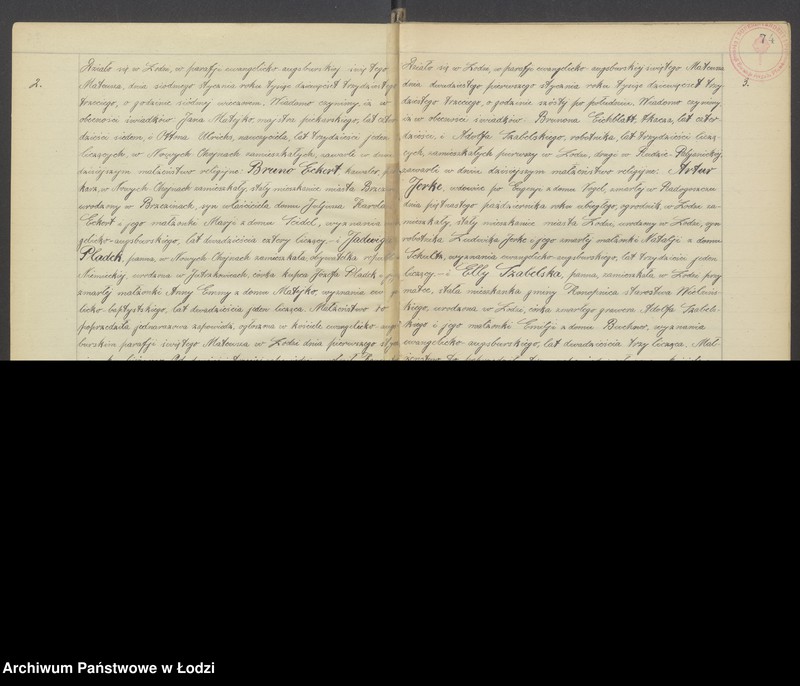 2.
Działo się w Łodzi, w parafji ewangelicko-augsburskiej świętego
Mateusza, dnia siódmego stycznia roku tysiąc dziewięćset trzydziestego
trzeciego, o godzinie siódmej wieczorem. Wiadomo czynimy, iż w
obecności świadków Jana Matyjko, majstra piekarskiego, lat
dzieści siedem, i Ottona Ulrichs, nauczyciela, lat trzydzieści jeden
liczących, w Nowych Chojnach zamieszkałych, zawarte w dniu
dzisiejszym małżeństwo religijne: Bruno Eckert, kawaler,
w Nowych Chojnach zamieszkały, stały mieszkaniec miasta Brzezin,
urodzony w Brzezinach, syn właściciela domu Juljusza Karola
Eckert i jego małżonki Marji z domu Seidel, wyznania
gelicko-augsburskiego, lat dwadzieścia cztery liczący – i Jadwiga
Pladek, panna, w Nowych Chojnach zamieszkała, obywatelka
Niemieckiej, urodzona w Jutrzkowicach, córka kupca Józefa Pladek i
zmarłej małżonki Anny Emmy z domu Matyjko, wyznania
licko-baptystskiego, lat dwadzieścia jeden licząca. Małżeństwo to
poprzedziła jednorazowa zapowiedź, ogłoszona w kościele ewangelicko-augs
burskim parafji świętego Mateusza w Łodzi dnia pierwszego
74
3.
Działo się w Łodzi, w parafji ewangelicko-augsburskiej świętego Mateusza
dnia dwudziestego pierwszego stycznia roku tysiąc dziewięćset trzy-
dziestego trzeciego, o godzinie szóstej po południu. Wiadomo czynimy
iż w obecności świadków: Brunona Eichblatt, tkacza, lat czter-
dzieści, i Adolfa Szabelskiego, robotnika, lat trzydzieści licz-
cych, zamieszkałych pierwszy w Łodzi, drugi w Rudzie-Pabjanickiej,
zawarte w dniu dzisiejszym małżeństwo religijne: Artur
Jerke, wdowiec po Eugenji z domu Vogel, zmarłej w Radogoszczu
dnia piętnastego października roku ubiegłego, ogrodnik, w Łodzi za-
mieszkały, stały mieszkaniec miasta Łodzi, urodzony w Łodzi, syn
robotnika Ludwika Jerke i jego zmarłej małżonki Natalji z domu
Schultz, wyznania ewangelicko-augsburskiego, lat trzydzieści jeden
liczący – i Elly Szabelska, panna, zamieszkała w Łodzi przy
matce, stała mieszkanka gminy Konopnica starostwa Wieluńs-
kiego, urodzona w Łodzi, córka zmarłego Adolfa Szabels-
kiego i jego małżonki Emilji z domu Buchow, wyznania
ewangelicko-augsburskiego, lat dwadzieścia trzy licząca. Mał-
Archiwum Państwowe w Łodzi